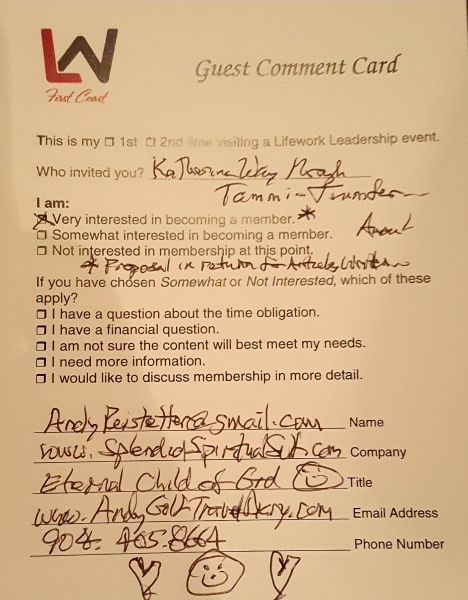 LW
First Coast
Guest Comment Card
This is my ☐ 1st ☐ 2nd time visiting a Lifework Leadership event.
Who invited you? Katherine Way
Tammi
I am:
☒ Very interested in becoming a member. *
☐ Somewhat interested in becoming a member.
☐ Not interested in membership at this point.
* Proposal in return for Articles Written
If you have chosen Somewhat or Not Interested, which of these
apply?
☐ I have a question about the time obligation.
☐ I have a financial question.
☐ I am not sure the content will best meet my needs.
☐ I need more information.
☐ I would like to discuss membership in more detail.
AndyReistetter@gmail.com Name
www.SplendidSpiritualSit.com Company
Eternal Child of God Title
www.AndyGolfTravelDiary.com Email Address
904.465.8664 Phone Number